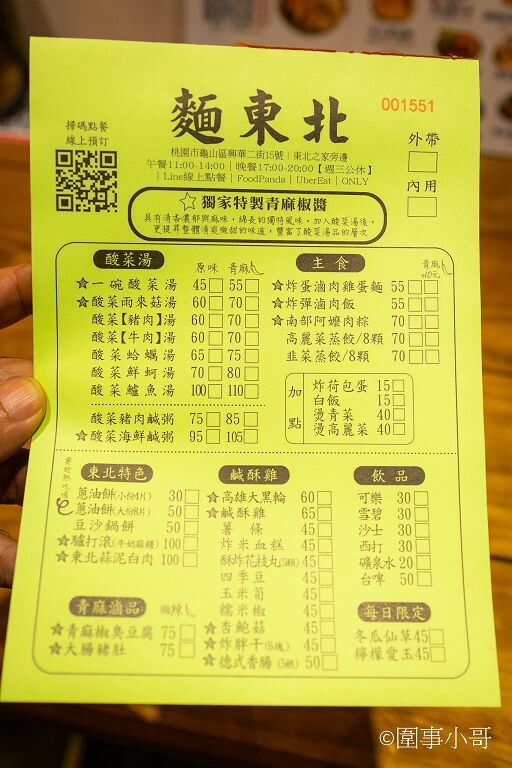 麵東北
001551
掃碼點餐
線上預訂
桃園市龜山區興華二街15號｜東北之家旁邊
午餐11:00-14:00｜晚餐17:00-20:00【週三公休】
｜Line線上點餐｜FoodPanda｜UberEat｜ONLY
外帶
內用
☆獨家特製青麻椒醬
具有清香濃郁與麻味，綿長的獨特風味，加入酸菜湯後，
更提昇整體清爽微甜的味道，豐富了酸菜湯品的層次
酸菜湯 原味 青麻
☆一碗酸菜湯 45 55
☆酸菜雨來菇湯 60 70
酸菜【豬肉】湯 60 70
酸菜【牛肉】湯 60 70
酸菜蛤蠣湯 65 75
酸菜鮮蚵湯 70 80
酸菜鱸魚湯 100 110
酸菜豬肉鹹粥 75 85
☆酸菜海鮮鹹粥 95 105
主食 青麻+10元
☆炸蛋滷肉雞蛋麵 55
☆炸彈滷肉飯 55
☆南部阿嬤肉粽 70
高麗菜蒸餃/8顆 70
韭菜蒸餃/8顆 70
加點
炸荷包蛋 15
白飯 15
燙青菜 40
燙高麗菜 40
東北特色
蔥油餅(小份4片) 30
蔥油餅(大份8片) 50
豆沙鍋餅 50
☆驢打滾(牛奶麻糬) 100
☆東北蒜泥白肉 100
青麻滷品 微辣
☆青麻椒臭豆腐 75
☆大腸豬肚 75
鹹酥雞
☆高雄大黑輪 60
☆鹹酥雞 65
薯條 45
炸米血糕 45
酥炸花枝丸(5顆) 45
四季豆 45
玉米筍 45
糯米椒 45
☆杏鮑菇 45
☆炸胖干(6塊) 45
☆德式香腸(5根) 50
飲品
可樂 30
雪碧 30
沙士 30
西打 30
礦泉水 20
台啤 50
每日限定
冬瓜仙草 45
檸檬愛玉 45
©圍事小哥